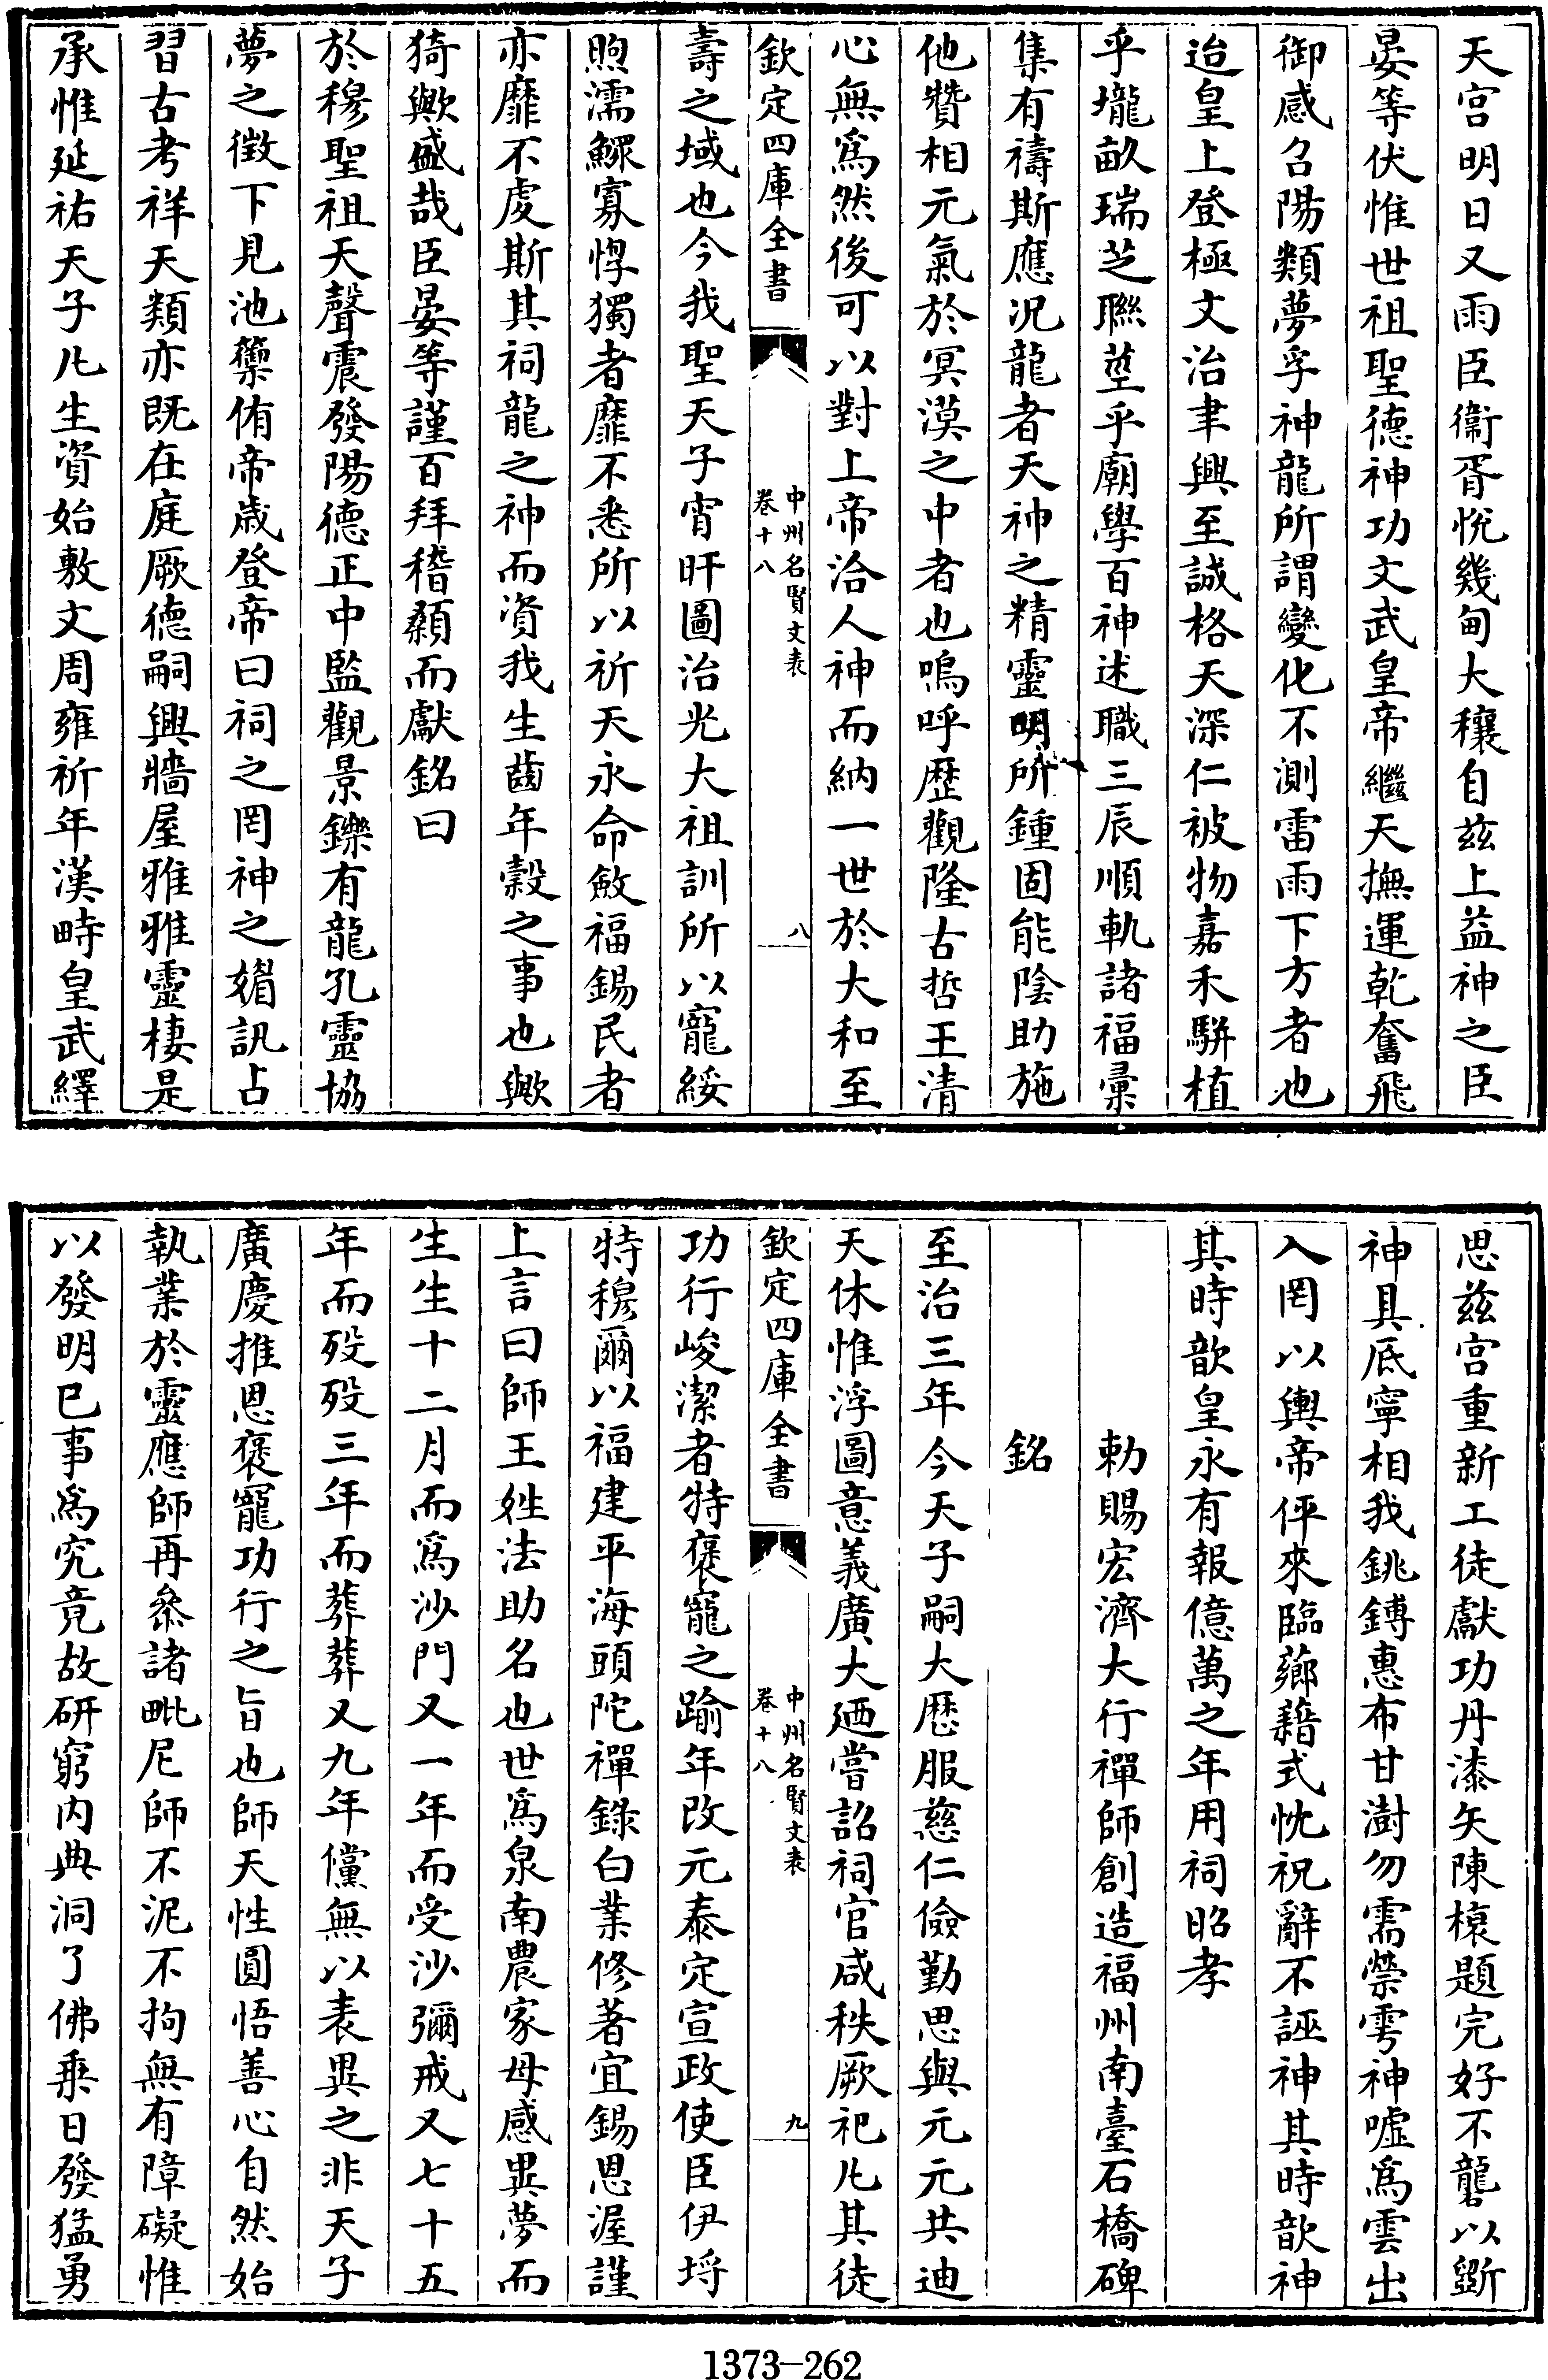 天宫明日又雨臣衞胥恱幾甸大穰自兹上益神之臣
晏等伏惟世祖聖德神功文武皇帝繼天撫運乾奮飛
御感召陽類夢孚神龍所謂變化不測雷雨下方者也
迨皇上登極文治聿興至誠格天深仁被物嘉禾駢植
乎壠畝瑞芝聯莖乎廟學百神述職三辰順軌諸福彚
集有禱斯應况龍者天神之精靈明所鍾固能陰助施
他贊相元氣於冥漠之中者也嗚呼歴觀隆古哲王清
心無爲然後可以對上帝洽人神而納一世於大和至
欽定四庫全書
中州名賢文表
卷十八
八
壽之域也今我聖天子宵旰圖治光大祖訓所以寵綏
煦濡鰥寡惸獨者靡不悉所以祈天永命斂福錫民者
亦靡不虔斯其祠龍之神而資我生齒年穀之事也歟
猗歟盛哉臣晏等謹百拜稽顙而獻銘曰
於穆聖祖天聲震發陽德正中監觀景鑠有龍孔靈協
夢之徴下見池籞侑帝歳登帝曰祠之罔神之媢訊占
習古考祥天類亦既在庭厥德嗣興牆屋雅雅靈棲是
承惟延祐天子凡生資始敷文周雍祈年漢畤皇武繹
思兹宫重新工徒獻功丹漆矢陳榱題完好不礱以斵
神具底寧相我銚鎛惠布甘澍勿需禜雩神嘘爲雲出
入罔以輿帝伻來臨薌藉式忱祝辭不誣神其時歆神
其時歆皇永有報億萬之年用祠昭孝
勅賜宏濟大行禪師創造福州南臺石橋碑
銘
至治三年今天子嗣大歴服慈仁儉勤思與元元共迪
天休惟浮圖意義廣大廼嘗詔祠官咸秩厥祀凡其徒
欽定四庫全書
中州名賢文表
卷十八
九
功行峻潔者特褒寵之踰年改元泰定宣政使臣伊埒
特穆爾以福建平海頭陀禪錄白業修著宜錫恩渥謹
上言曰師王姓法助名也世爲泉南農家母感異夢而
生生十二月而爲沙門又一年而受沙彌戒又七十五
年而歿歿三年而葬葬又九年儻無以表異之非天子
廣慶推恩褒寵功行之旨也師天性圓悟善心自然始
執業於靈應師再叅諸毗尼師不泥不拘無有障礙惟
以發明已事爲究竟故研窮内典洞了佛乗日發猛勇
1373-262